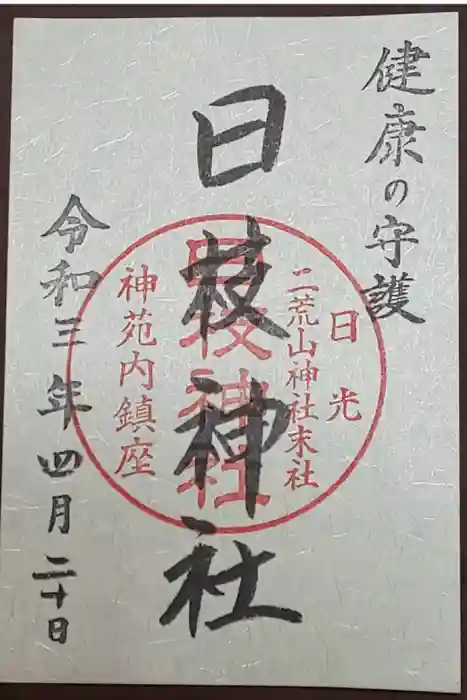 健康の守護
日光
二荒山神社末社
日枝神社
日枝神社
神苑内鎮座
令和三年四月二十日